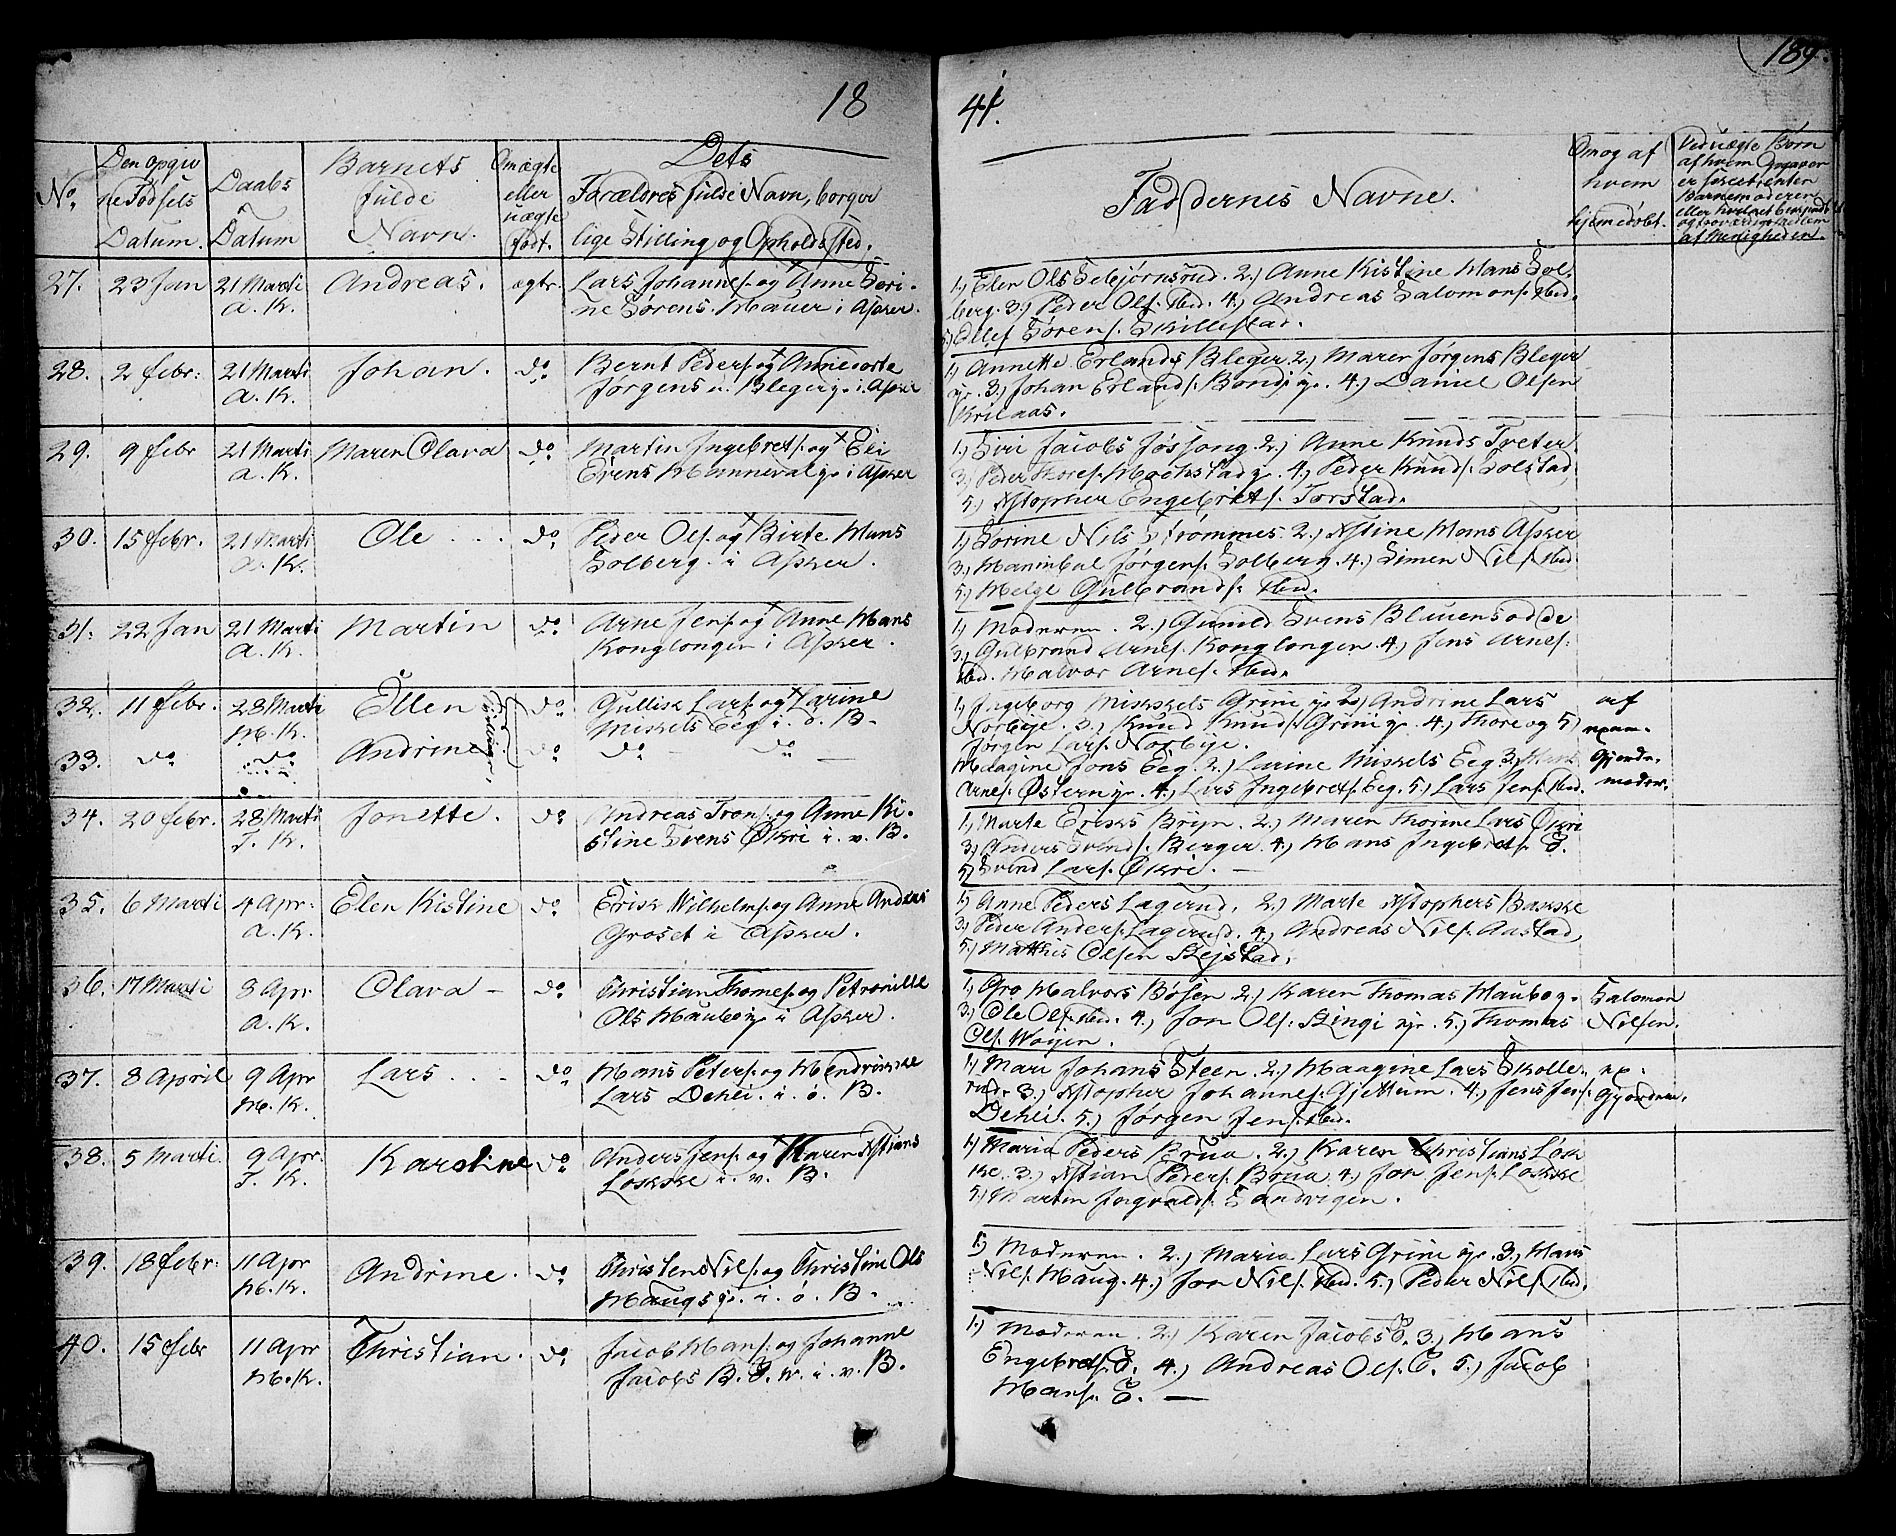 18 41.
189.
No. Den opgiv
ne Fødsels
Datum. Daabs
Datum Barnets
fulde
Navn. Om ægte
eller
uægte
født. Dets
Forældres fulde Navn, borger
lige Stilling og Opholdssted. Faddernes Navne. Om og af
hvem
hjemedøbt. Ved uægte Børn
27. 23 Jan 21 Marti
A. K. Andreas. ægte. Lars Johannes. og Anne Søri-
ne Sørens. Hauer i Asker.
1.) Elen Ols Sebjørnsrud. 2.) Anne Kistine Hans Sol-
berg. 3.) Peder Ols. Ibid. 4.) Andreas Salomons. Ibid.
5.) Ellef Sørens. Skillestad.
28. 2 febr: 21 Marti
A. K. Johan. do. Bernt Peders. og Anne Dorte
Jørgens Bleger i Asker
1.) Annette Erlands Bleger 2.) Maren Jørgens Bleger
3.) Johan Erlands. Bondi 4.) Daniel Olsen
29. 9 febr 21 Marti
A. K. Maren Olava do. Martin Ingebrets. og Eli
Hanneval i Asker
1.) Siri Jacobs Jøssong. 2.) Anne Knuds Treter
3.) Peder Thores. 4.) Peder Knuds. Solstad,
5.) Xstopher Engebrets. Torstad.
30. 15 febr. 21 Marti
A. K. Ole . . . do. Peder Ols. og Birte Hans
Solberg. i Asker.
1.) Sørine Nils Strømmes. 2.) Xstine Hans Asker
3.) Hanibal Jørgens. Solberg. 4.) Simen Nils. Ibid
5.) Helge Gulbrands. Ibid.
31. 22 Jan 21 Marti
A. K. Martin do. Arne Jens. og Anne Hans
Konglongen i Asker.
1.) Moderen. 2.) Gunild Svens Blauensodde
3.) Gulbrand Arnes. Konglongen. 4.) Jens Arnes.
Ibid. Halvor Arnes. Ibid.
32. 11 febr. 28 Marti
H. K. Ellen do. Gullik Lars. og Larine
Mikkels Eeg i. ø. B.
1.) Ingeborg Mikkels Grini 2.) Andrine Lars
Norbye. 3.) Knud Knuds. Grini 4.) Thore og 5)
Jørgen Lars. Norbye. af
exam-
33. do do Andrine. do. do. — do. —
Maagine Jons Eeg. 2.) Larine Mikkels Eeg. 3. Hans
Arnes. Østern 4.) Lars Ingebrets. Eeg. 5.) Lars Jens. Ibid. Gjorde-
moder.
34. 20 febr. 28 Marti
T. K. Jonette. do Andreas Trons. og Anne Ki-
stine Svens Økri i. v. B.
1.) Marte Eriks Bryn. 2.) Maren Thorine Lars Økri
3.) Anders Svends. Berger 4.) Hans Ingebrets. E.
5.) Svend Lars. Økri. —
35. 6 Marti 4 Apr:
A. K. Elen Kistine do. Erik Wilhelms. og Anne Anders
Groset i Asker.
1.) Anne Peders Lagerud. 2.) Marte Xstophers Bakke
3.) Peder Anders. Lagerud. 4.) Andreas Nils. Aastad,
5.) Mathis Olsen Skejstad.
36. 17 Marti 8 Apr
A. K. Olava — do. Christian Thomes. og Petronille
Ols Haubog i Asker.
1.) Gro Halvors Bøsen 2.) Karen Thomas Haubog.
3.) Ole Ols. Ibid. 4.) Jon Ols. Ringi 5.) Thomas
Ols. Wøyen. Salomon
Nilsen.
37. 8 April 9 Apr
H. K. Lars. . . do. Hans Peters. og Hendrikke
Lars Dehli. i. ø. B.
1.) Mari Johans Steen. 2.) Maagine Lars Skolle-
rud. 3.) Xstopher Johannes. Gjettum. 4.) Jens Jens.
Dehli. 5.) Jørgen Jens. Ibid. ex.
Gjordem.
38. 5 Marti. 9 Apr.
T. K. Karoline do. Anders Jens. og Karen Xstians
Løkke i. v. B.
1.) Maria Peders Brua. 2.) Karen Christians Løk
ke. 3.) Xstian Peders. Brua 4.) Jon Jens. Løkke
5.) Martin Ingvalds. Sandvigen.
39. 18 febr: 11 Apr
H. K. Andrine. do. Christen Nils. og Christine Ols
Haugs i. ø. B.
1.) Moderen. 2.) Maria Lars Grini 3.) Hans
Nils. Haug. 4.) Jon Nils. Ibid. 5.) Peder Nils. Ibid.
40. 15 febr 11 Apr
H. K. Christian. do. Jacob Hans. og Johanne
Jacobs B. E. W. i. v. B.
1.) Moderen. 2.) Karen Jacobs E. 3.) Hans
Engebrets. E. 4.) Andreas Ols. E. 5.) Jacob
Hans. E. —